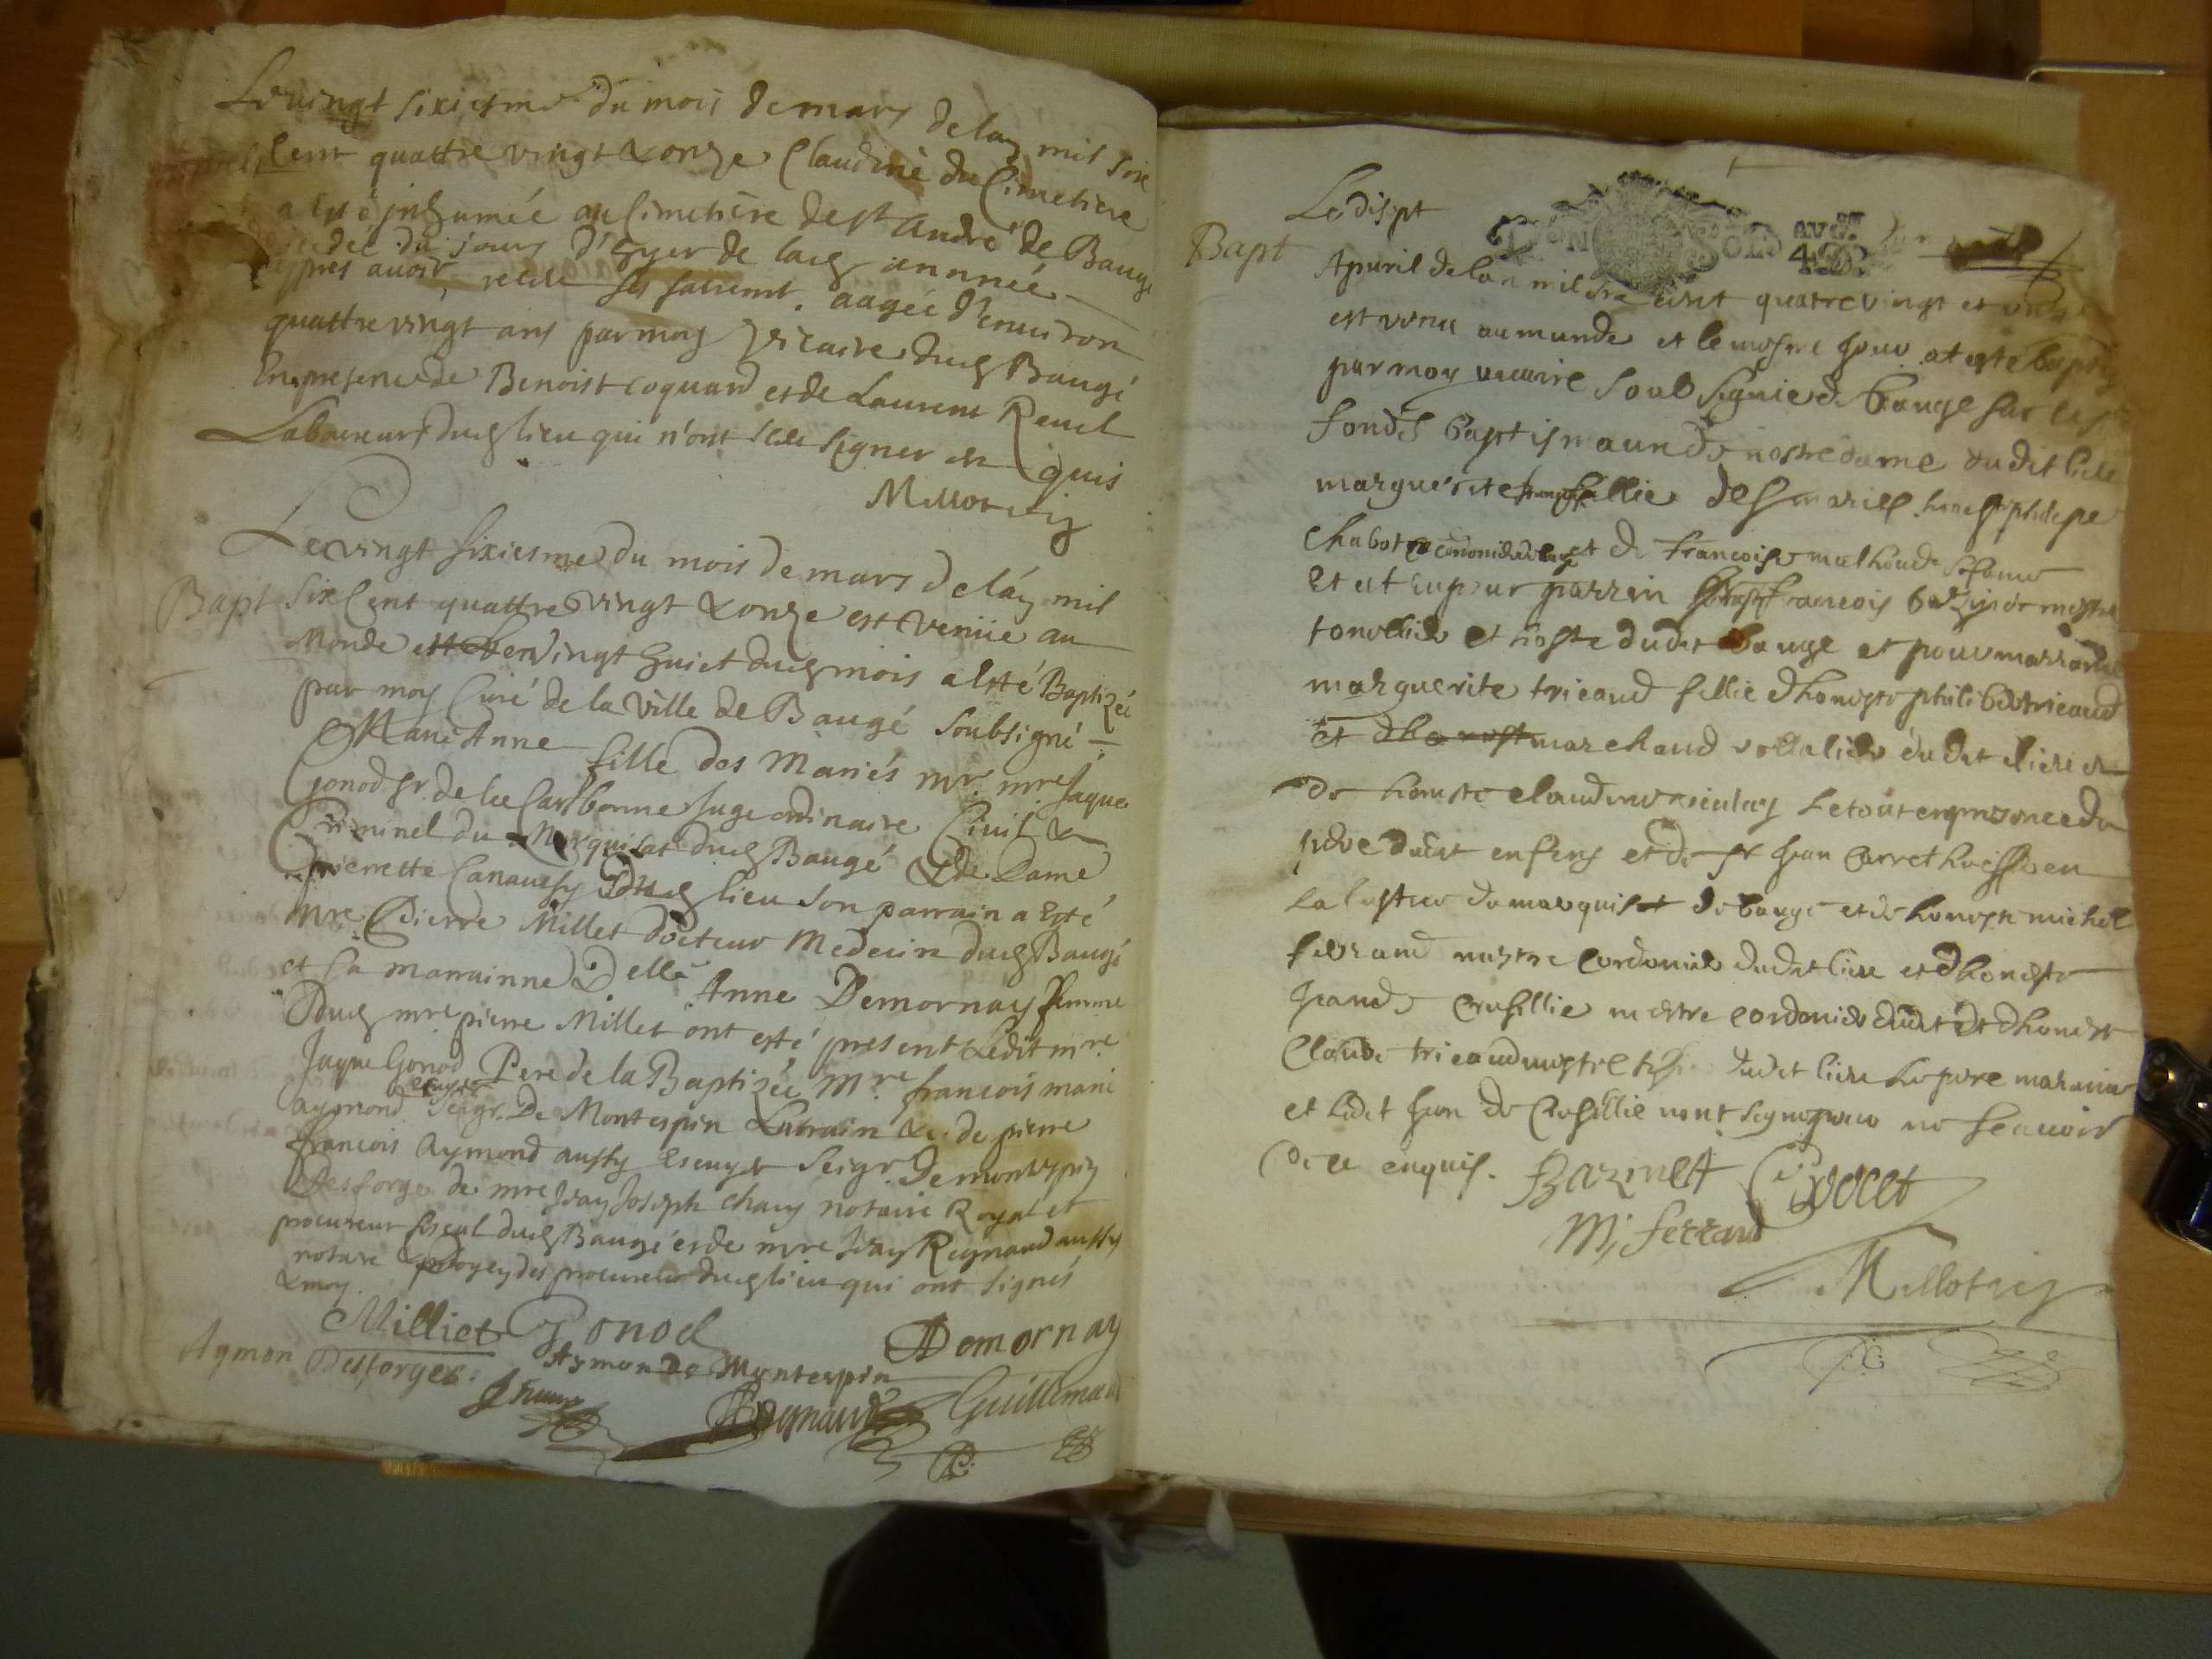 Le vingt sixiesme du mois de mars de lan mil six
Cent quattre vingt & onze Claudine du Cimetiere
a esté inhumée au Cimetière de st André de Baugé
decedée du jours d'hyer de lad annnée
apres avoir receu ses sacremt. aagée d'enuiron
quattre vingt ans par moy vicaire dud Baugé
En presence de Benoist Coquard et de Laurent Reuel
Laboureurs dud lieu qui n'ont sceu signer en quis
Millot vic
Le vingt sixiesme du mois de mars de lan mil
Bapt Six Cent quattre vingt & onze est venüe au
Monde et le vingt huict dud mois a esté Baptizée
par moy Curé de la Ville de Baugé soubsigné
Marie Anne fille des Mariés mr. mre Jaque
Gonod sr. de la Carbonne Juge ordinaire Civil &
Criminel du Marquisat dud Baugé & de Dame
pierrette Canaussy dud lieu son parrain a esté
mre Pierre Millet docteur Medecin dud Baugé
et sa marrainne Delle Anne Demornay femme
dud mre pierre Millet ont esté present Ledit mre
Jaque Gonod Pere de la Baptizée Mre francois marie
aymond escuyer seigr. De Montespin & de pierre
francois Aymond aussy escuyer seigr. de montespin
Desforge de mre Jean Joseph Chary notaire Royal et
procureur fiscal dud Baugé et de mre Jean Regnaud aussy
notaire & doyen des procureurs dud lieu qui ont signés
& moy.
Milliet Gonod Demornay
Aymon Desforges. Aymon de Montespin
Regnaud Guillemau
Le dispt
GEN SOLS AVG. 4 D
Bapt Apvril de lan mil six cent quatre vingt et onze
est venu au munde et le mesme jour at esté baptizé
par moy vicaire soub signié de bauge sur les
fonds baptismaun de nostre dame dudit lieu
marguerite fillie des mariés honeste philipe
Chabot et de francoise mathoud sa fame
et at eu pour parrin francois bazinet mestre
tonellier et hoste dudit bauge et pour marraine
marguerite tricaud fillie dhoneste philibert tricaud
et dhonest marchand dudit lieu et
de honeste claudine le tout en presence du
pere dudit enfens et de sr Jean Carret huissier en
la Justice du marquisat de bauge et de honeste michel
ferrand mestre Cordonier dudit lieu et dhoneste
Jean de Crusillie mestre cordonier dudit et dhoneste
Claude tricaud mestre dudit lieu le pere maraine
et ledit Jean de Crusillie nont signé pour ne scavoir
de ce enquis. Bazinet Carret
M. ferrand
Millot vic